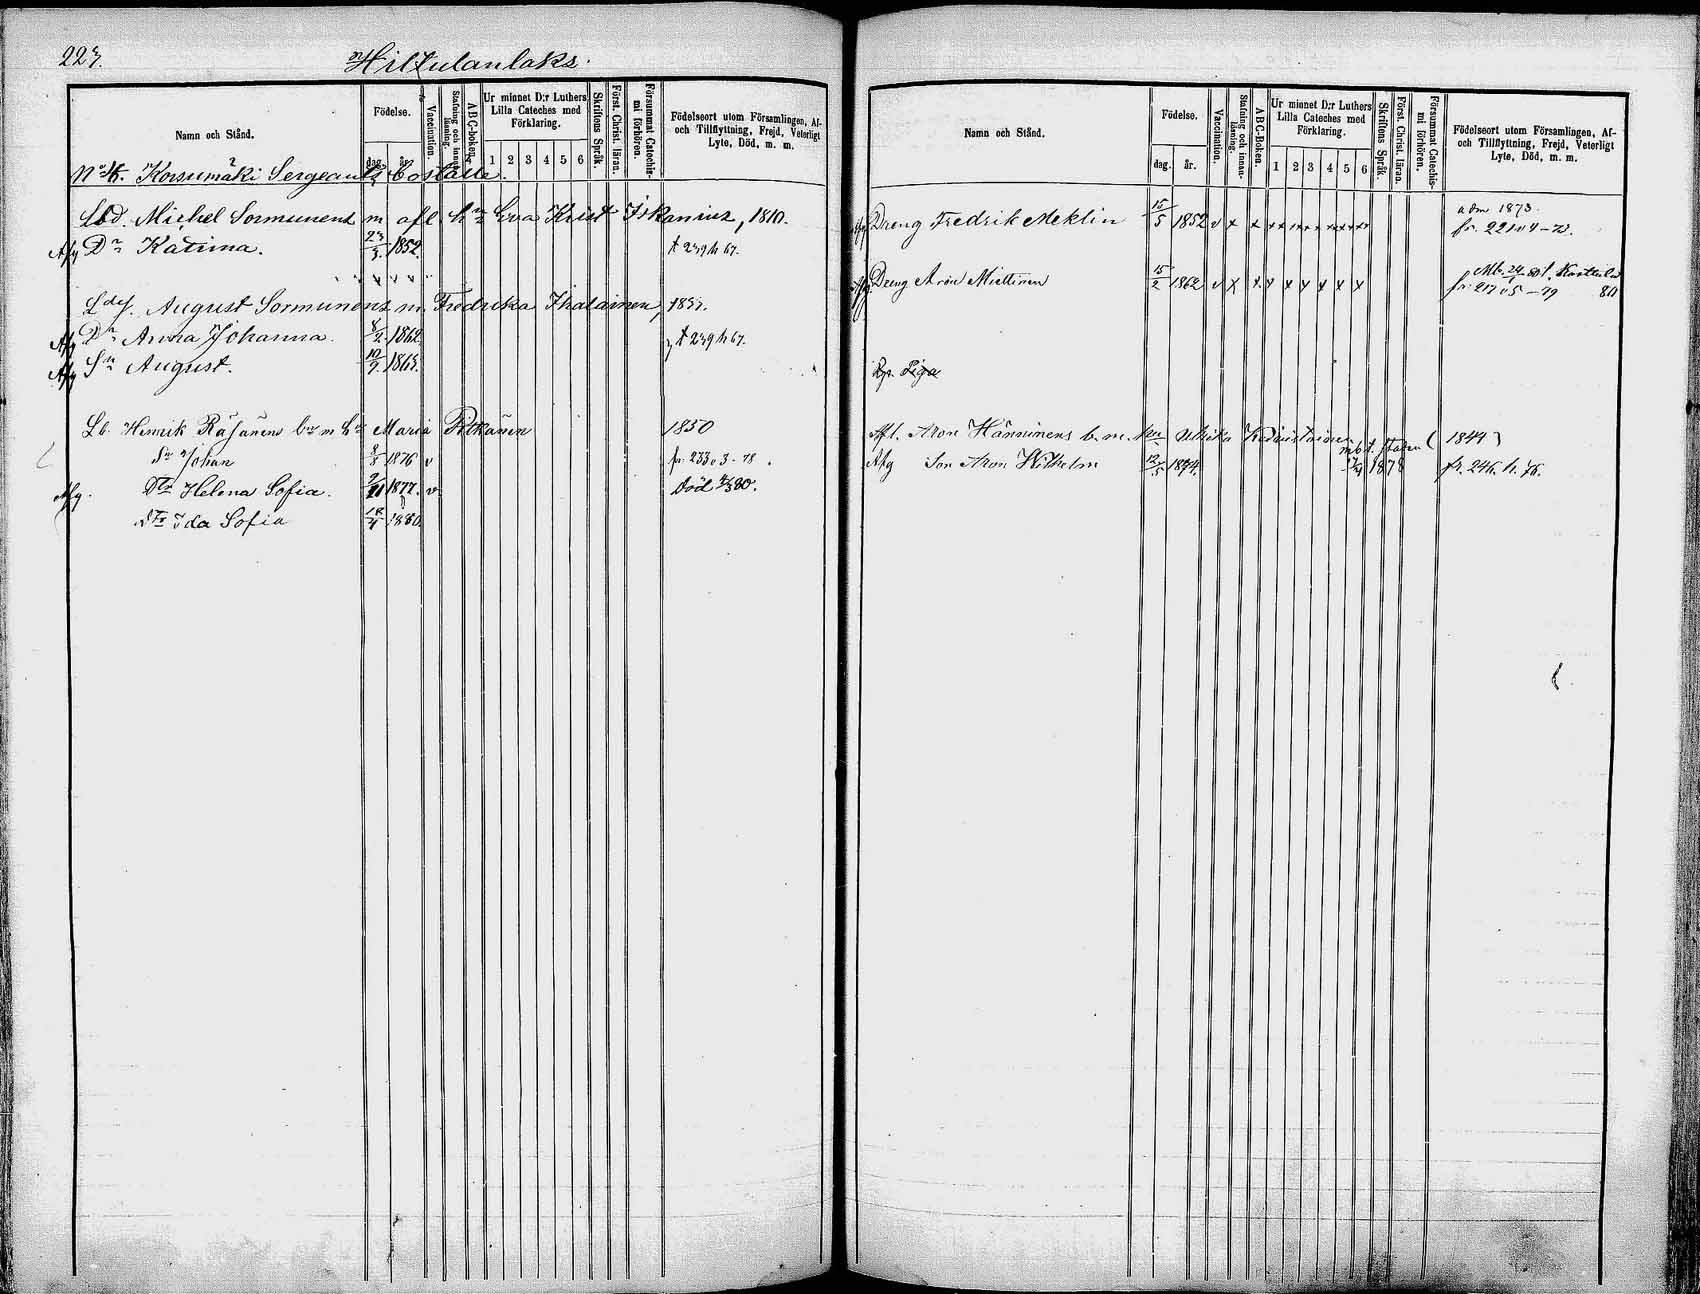 223.
Hiltulanlaks.
Namn och Stånd.
Födelse.
dag.
år.
Vaccination.
Stafning och innanläsning.
ABC-boken.
Ur minnet D:r Luthers Lilla Cateches med Förklaring.
1 2 3 4 5 6
Skriftens Språk.
Först. Christ. läran.
Försummat Catechismi förhören.
Födelseort utom Församlingen, Af- och Tillflyttning, Frejd, Veterligt Lyte, Död, m. m.
Korsumäki Sergeants Boställe.
Lbd. Michel Sormunens m afl. Eva Krist Iskanius, 1810.
Afg Dr Katrina. 23/3 1852. † 239 h 67.
August Sormunens m. Fredrika Ihalainen, 1837.
Afg Dr Anna Johanna. 8/2 1862. † 239 h 67.
Afg Sn August. 10/9 1865.
Lb. Henrik Räsänens m h Maria Pitkänen 1850
Sn Johan 8/8 1876 v fr. 233 o 3-78.
Afg. Dtr Helena Sofia. 1877. v Död 80.
Dtr Ida Sofia 18/4 1880.
Namn och Stånd.
Födelse.
dag.
år.
Vaccination.
Stafning och innanläsning.
ABC-Boken.
Ur minnet D:r Luthers Lilla Cateches med Förklaring.
1 2 3 4 5 6
Skriftens Språk.
Först. Christ. läran.
Försummat Catechismi förhören.
Födelseort utom Församlingen, Af- och Tillflyttning, Frejd, Veterligt Lyte, Död, m. m.
adm 1873.
Afg Dreng Fredrik Meklin 15/5 1852 v x x x x x x x x
Mb. 24/1 80 t. Karttula
Afg. Dreng Aron Miettinen 15/2 1862 v x x x x x x x x fr. 217 o 5-79 80
Piga
Afl. Aron Hänninens b. m. Ulrika (1844)
mbt. Staden
Afg Son Aron Wilhelm 12/5 1874. 1878 fr. 246 h. 76.